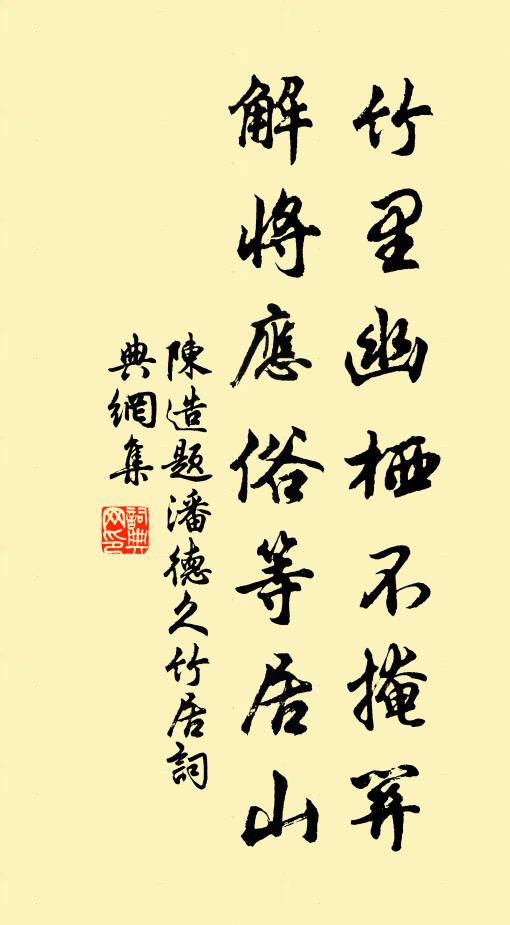 竹里幽栖不掩關
解將應俗等居山
陳造題潘德久竹居詞
典網集
詞典
网印